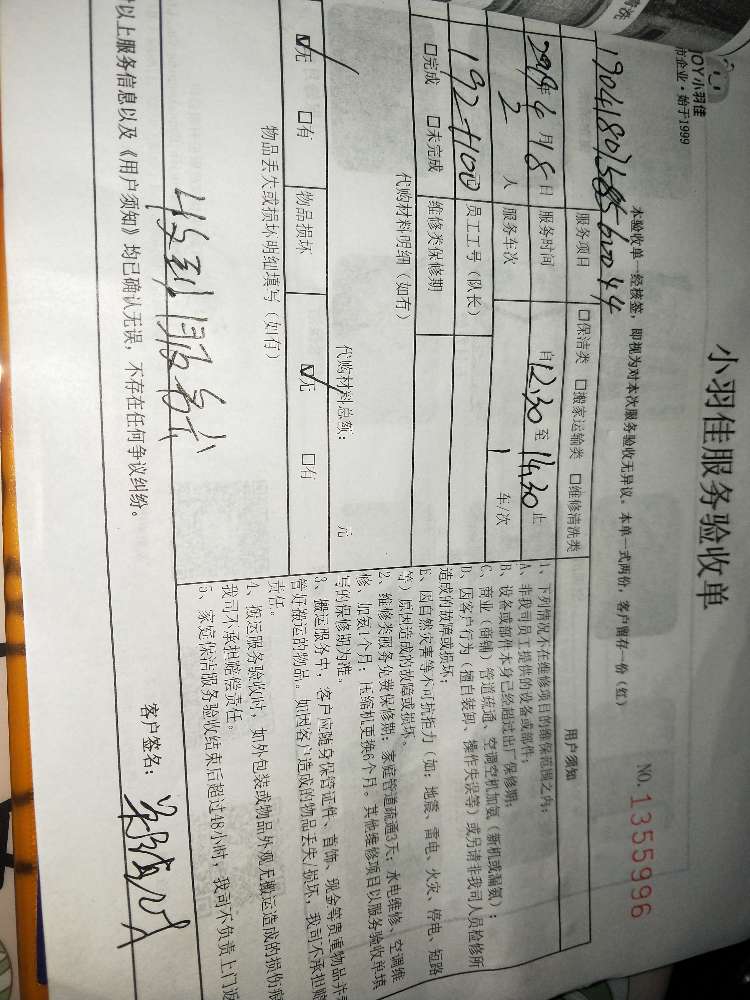 JOY小羽佳
市企业·始于1999
小羽佳服务验收单
本验收单一经核签，即视为对本次服务验收无异议。本单一式两份，客户留存一份（红）
NO.1355996
服务项目
□保洁类 □搬家运输类 □维修清洗类
年4月18日
服务时间
自12:30至14:30止
2人
服务车次
1车/次
员工工号（队长）
□完成 □未完成
维修类保修期
代购材料明细（如有）
代购材料总额： 元
☑无 □有
物品损坏
☑无 □有
物品丢失或损坏明细填写（如有）
收到，服务
以上服务信息以及《用户须知》均已确认无误，不存在任何争议纠纷。
客户签名：
用户须知
1、下列情况不在维修项目的维保范围之内：
A、非我司员工提供的设备或部件；
B、设备或部件本身已经超过出厂保修期；
C、商业（商铺）管道疏通、空调空机加氨（新机或漏氨）；
D、因客户行为（擅自装卸、操作失误等）或另请非我司人员检修所
造成的故障或损坏；
E、因自然灾害等不可抗拒力（如：地震、雷电、火灾、停电、短路
等）原因造成的故障或损坏。
2、维修类服务免费保修期：家庭管道疏通3天；水电维修、空调维
修、加氨1个月；压缩机更换6个月。其他维修项目以服务验收单填
写的保修期为准。
3、搬运服务中，客户应随身保管证件、首饰、现金等贵重物品并
管好搬运的物品。如因客户造成的物品丢失/损坏，我司不承担赔
责任。
4、搬运服务验收时，如外包装或物品外观无搬运造成的损伤痕
我司不承担赔偿责任。
5、家庭保洁服务验收结束后超过48小时，我司不负责上门返